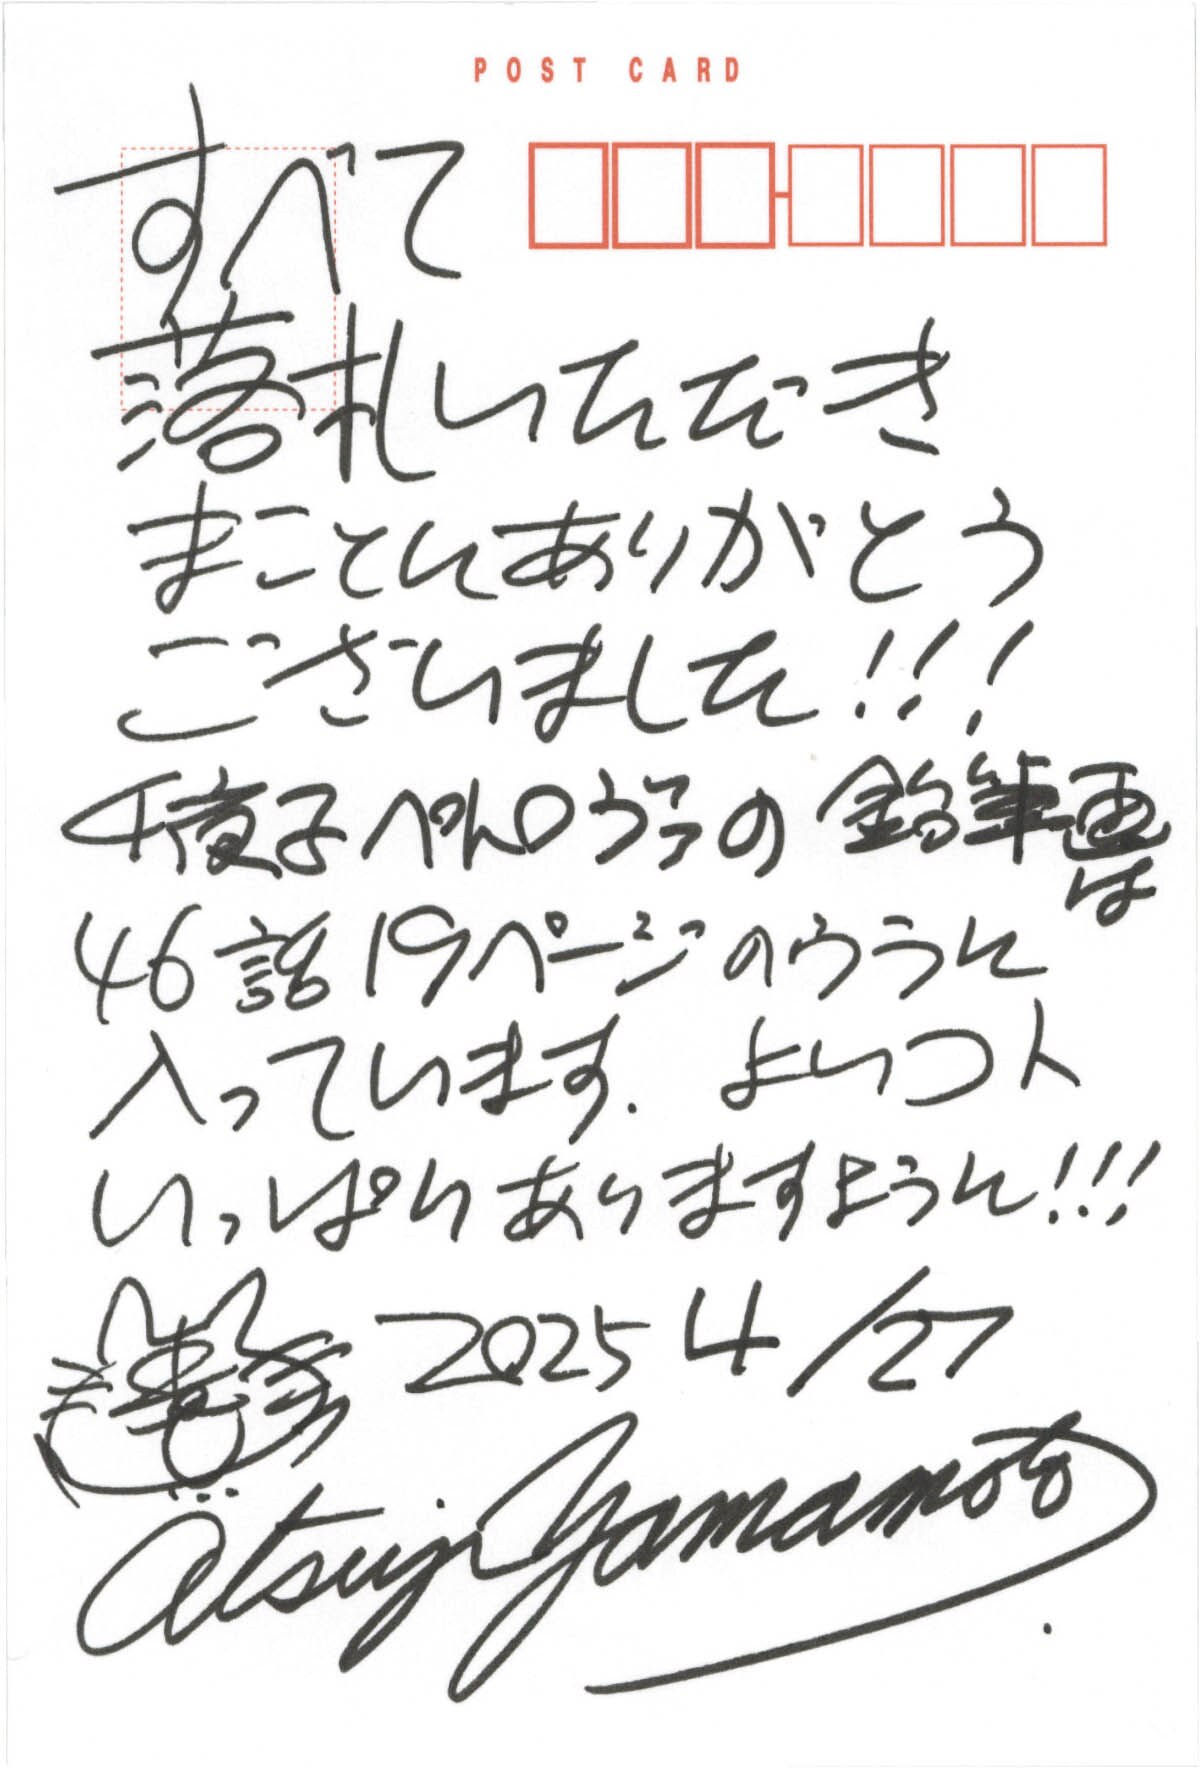 POST CARD
すべて
落札いただき
まことにありがとう
ございました!!!
千夜子ぺんろララの鉛筆画は
46話19ページのうらに
入っています. よいコト
いっぱいありますように!!!
2025 4/27
Atsuji Yamamoto